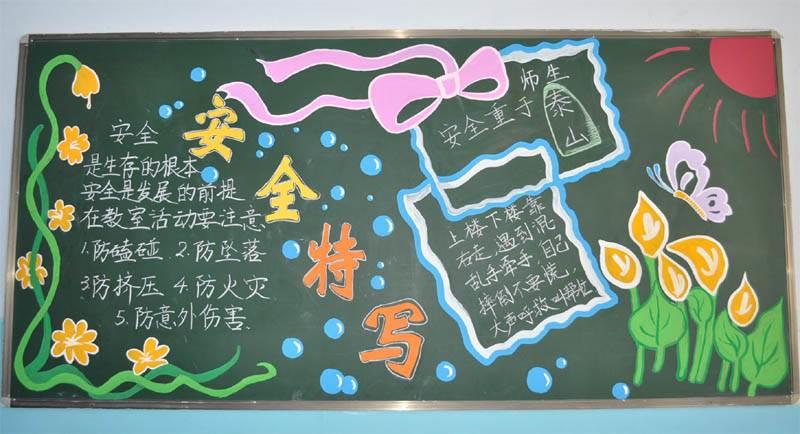 安全特写
安全
是生存的根本
安全是发展的前提
在教室活动要注意
1.防磕碰 2.防坠落
3防挤压 4.防火灾
5.防意外伤害、
师生
安全重于
泰山
上楼下楼靠
右走,遇到混
乱手牵手,自己
摔倒不要慌,
大声呼救叫帮忙